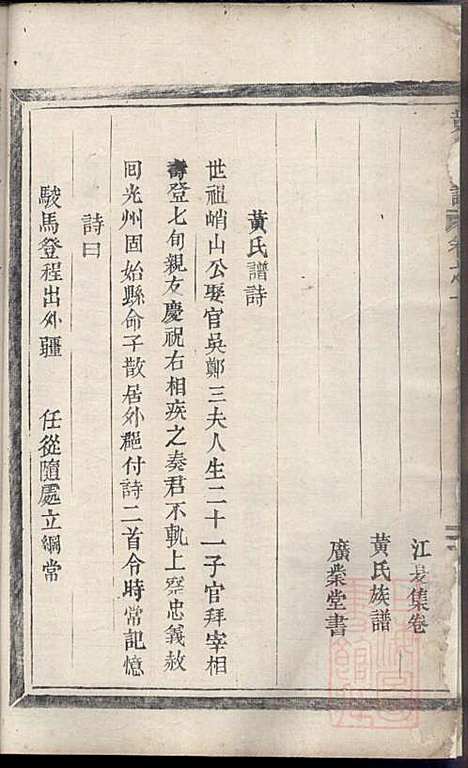 江夏集卷一
黃氏族譜
廣業堂書
黃氏譜詩
世祖峭山公娶官吳鄭三夫人生二十一子官拜宰相
壽登七旬親友慶祝右相疾之奏君不軌上察忠義赦
囘光州固始縣命子散居外郡付詩二首令時常記憶
詩曰
駿馬登程出外疆　任從隨處立綱常